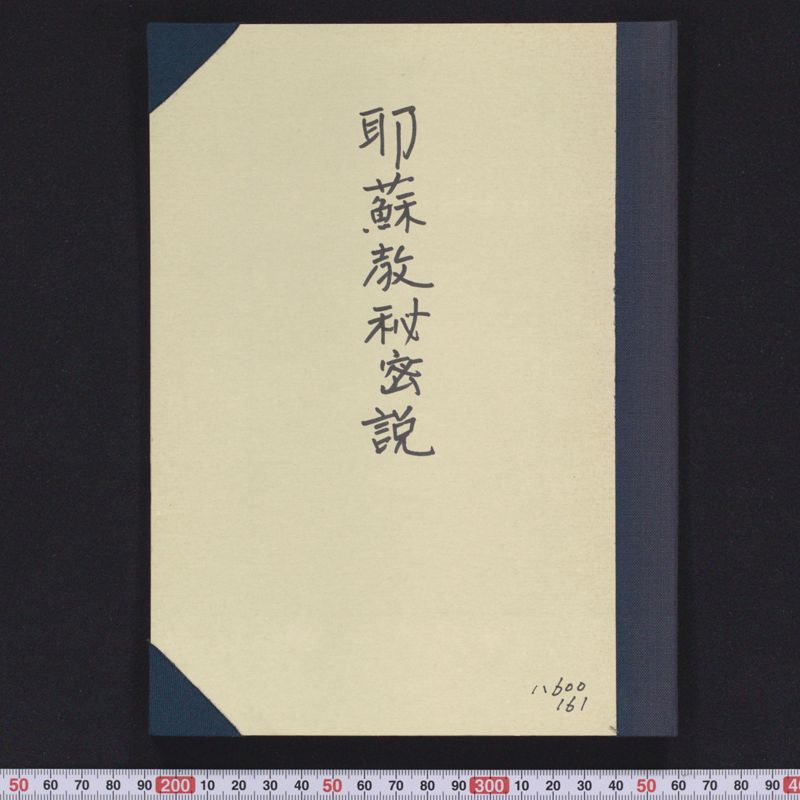 耶蘇教秘密説
ハ600
161
50 60 70 80 90 200 10 20 30 40 50 60 70 80 90 300 10 20 30 40 50 60 70 80 90